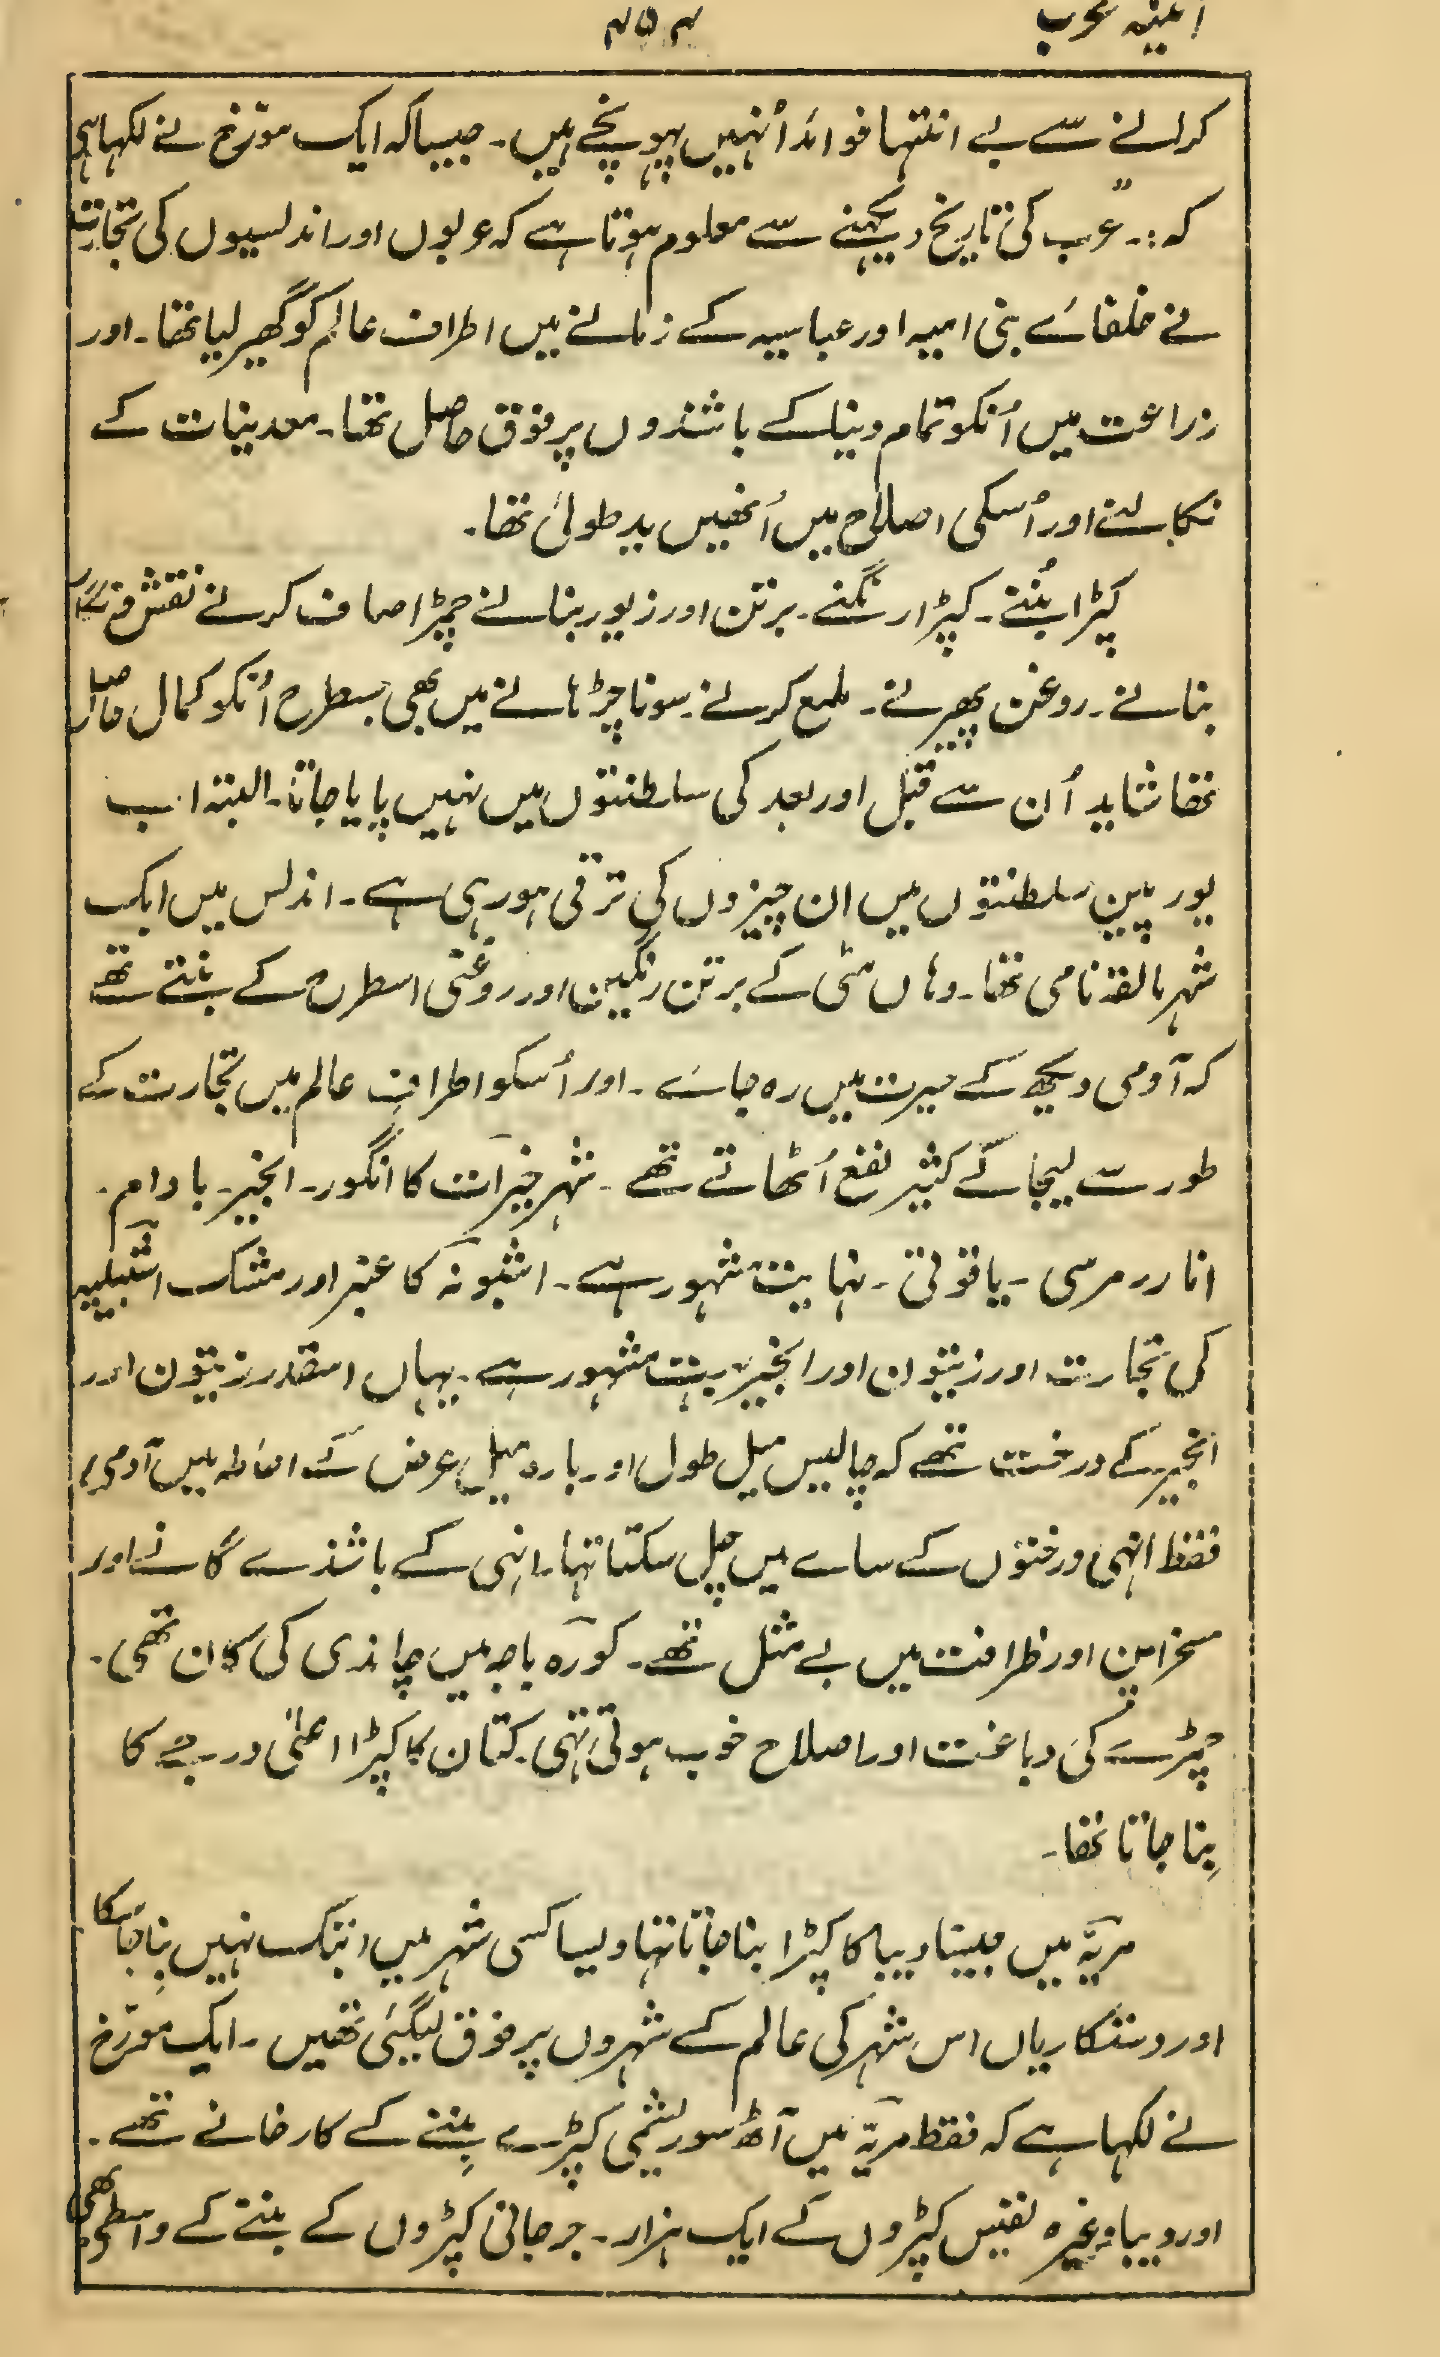 آئینہ عرب
۴۵۴
کرلنے سے بے انتہا فوائد اُنہیں پہوپنچے ہیں۔ جیساکہ ایک مورّخ نے لکہاہی
کہ:۔ ”عرب کی تاریخ دیکہنے سے معلوم ہوتا ہے کہ عربوں اور اندلسیوں کی تجارت
نے خلفائے بنی امیہ اور عباسیہ کے زمانے میں اطراف عالم کو گھیر لیا تھا۔ اور
زراعت میں اُنکو تمام دنیا کے باشندوں پر فوق حاصل تھا۔ معدنیات کے
نکالنے اور اُسکی اصلاح میں اُنھیں ید طولیٰ تھا۔
کپڑا بُننے۔ کپڑا رنگنے۔ برتن اور زیور بنانے چمڑا صاف کرنے نقش و نگار
بنانے۔ روغن پھیرنے۔ ملمع کرنے۔ سونا چڑہانے میں بھی جسطرح اُنکو کمال حاصل
تھا شاید اُن سے قبل اور بعد کی سلطنتوں میں نہیں پایا جاتا۔ البتہ اب
یورپین سلطنتوں میں ان چیزوں کی ترقی ہو رہی ہے۔ اندلس میں ایک
شہر مالقہ نامی تھا۔ وہاں مٹی کے برتن رنگین اور روغنی اسطرح کے بنتے تھے
کہ آدمی دیکھ کے حیرت میں رہ جائے۔ اور اُسکو اطراف عالم میں تجارت کے
طور سے لیجا کے کثیر نفع اُٹھاتے تھے۔ شہر خیرات کا انگور۔ انجیر۔ بادام۔
انار۔ مرسی۔ یاقوتی۔ نہایت مشہور ہے۔ اشبونہ کا عنبر اور مشک اشبیلیہ
کی تجارت اور زیتون اور انجیر بہت مشہور ہے۔ یہاں اسقدر زیتون اور
انجیر کے درخت تھے کہ چالیس میل طول اور بارہ میل عرض کے احاطہ میں آدمی
فقط انہی درختوں کے سایے میں چل سکتا تہا۔ انہی کے باشندے گانے اور
مسخراپن اور ظرافت میں بے مثل تھے۔ کورہ باجہ میں چاندی کی کان تھی۔
چمڑے کی دباغت اور اصلاح خوب ہوتی تہی۔ کتان کا کپڑا اعلیٰ درجے کا
بِنا جاتا تھا۔
مریّہ میں جیسا دیبا کا کپڑا بنا جاتا تہا ویسا کسی شہر میں ابتک نہیں بِنا جاسکا
اور دستکاریاں اس شہر کی عالم کے شہروں پر فوق لیگئی تھیں۔ ایک مورّخ
نے لکہا ہے کہ فقط مریّہ میں آٹھ سو ریشمی کپڑے بِننے کے کارخانے تھے۔
اور دیبا وغیرہ نفیس کپڑوں کے ایک ہزار۔ جرجانی کپڑوں کے بننے کے واسطے بھی